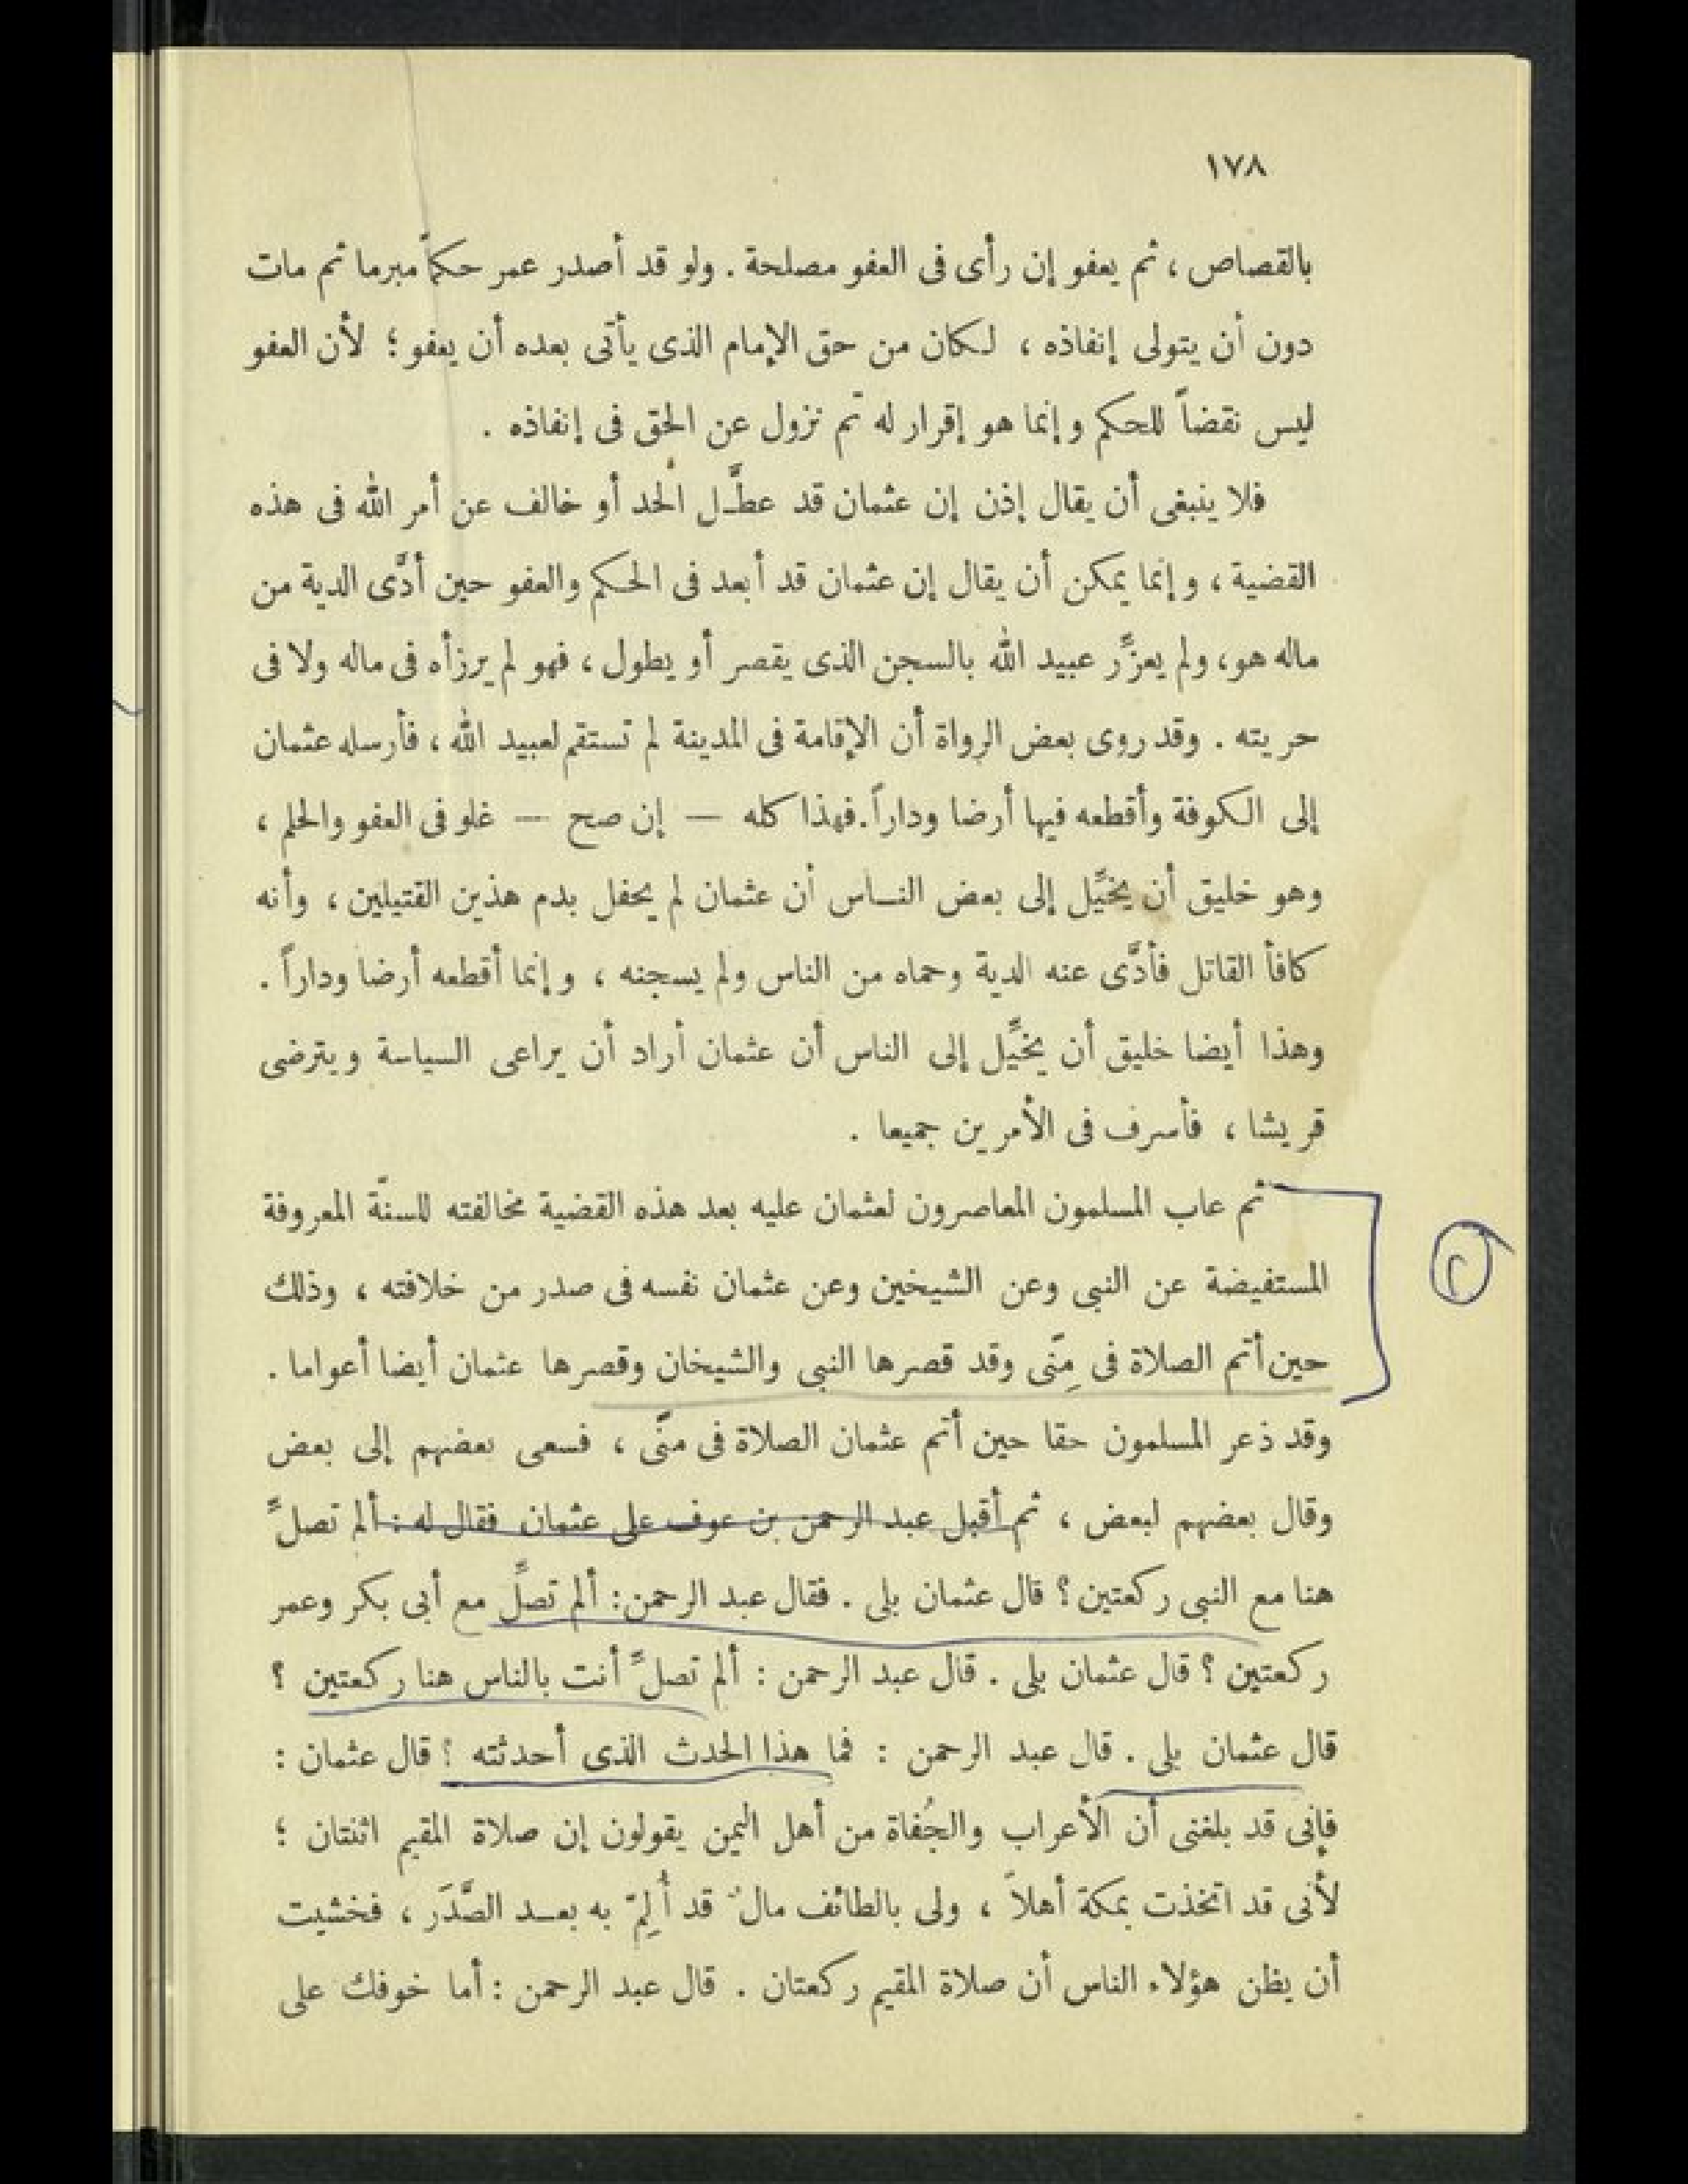 ١٧٨
بالقصاص ، ثم يعفو إن رأى فى العفو مصلحة . ولو قد أصدر عمر حكماً مبرما ثم مات
دون أن يتولى إنفاذه ، لكان من حق الإمام الذى يأتى بعده أن يعفو ؛ لأن العفو
ليس نقضاً للحكم وإنما هو إقرار له ثم نزول عن الحق فى إنفاذه .
فلا ينبغى أن يقال إذن إن عثمان قد عطَّل الحد أو خالف عن أمر الله فى هذه
القضية ، وإنما يمكن أن يقال إن عثمان قد أبعد فى الحكم والعفو حين أدَّى الدية من
ماله هو ، ولم يعزِّر عبيد الله بالسجن الذى يقصر أو يطول ، فهو لم يرزأه فى ماله ولا فى
حريته . وقد روى بعض الرواة أن الإقامة فى المدينة لم تستقم لعبيد الله ، فأرسله عثمان
إلى الكوفة وأقطعه فيها أرضا وداراً . فهذا كله — إن صح — غلو فى العفو والحلم ،
وهو خليق أن يخيِّل إلى بعض الناس أن عثمان لم يحفل بدم هذين القتيلين ، وأنه
كافأ القاتل فأدَّى عنه الدية وحماه من الناس ولم يسجنه ، وإنما أقطعه أرضا وداراً .
وهذا أيضا خليق أن يخيِّل إلى الناس أن عثمان أراد أن يراعى السياسة ويترضى
قريشا ، فأسرف فى الأمرين جميعا .
ثم عاب المسلمون المعاصرون لعثمان عليه بعد هذه القضية مخالفته للسنّة المعروفة
المستفيضة عن النبى وعن الشيخين وعن عثمان نفسه فى صدر من خلافته ، وذلك
حين أتم الصلاة فى مِنًى وقد قصرها النبى والشيخان وقصرها عثمان أيضا أعواما .
وقد ذعر المسلمون حقا حين أتم عثمان الصلاة فى منًى ، فسعى بعضهم إلى بعض
وقال بعضهم لبعض ، ثم أقبل عبد الرحمن بن عوف على عثمان فقال له : ألم تصلِّ
هنا مع النبى ركعتين ؟ قال عثمان بلى . فقال عبد الرحمن : ألم تصلِّ مع أبى بكر وعمر
ركعتين ؟ قال عثمان بلى . قال عبد الرحمن : ألم تصلِّ أنت بالناس هنا ركعتين ؟
قال عثمان بلى . قال عبد الرحمن : فما هذا الحدث الذى أحدثته ؟ قال عثمان :
فإنى قد بلغنى أن الأعراب والجُفاة من أهل اليمن يقولون إن صلاة المقيم اثنتان ؛
لأنى قد اتخذت بمكة أهلاً ، ولى بالطائف مالٌ قد أُلِمّ به بعد الصَّدَر ، فخشيت
أن يظن هؤلاء الناس أن صلاة المقيم ركعتان . قال عبد الرحمن : أما خوفك على